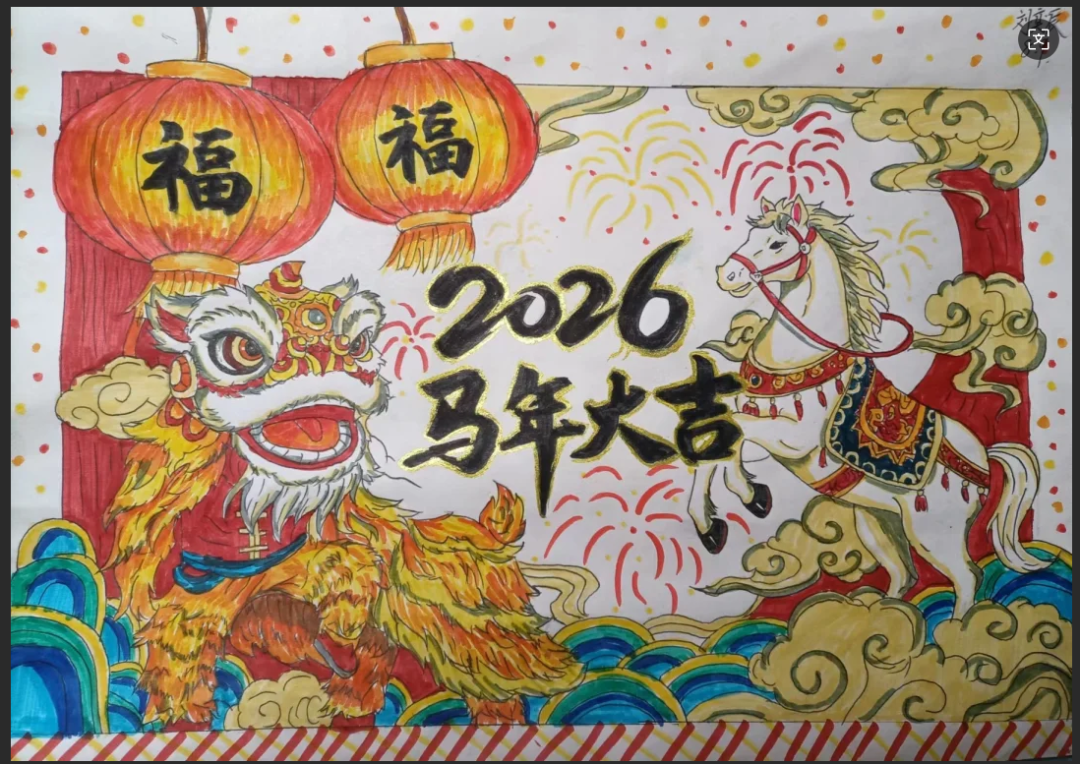 福
福
2026
马年大吉